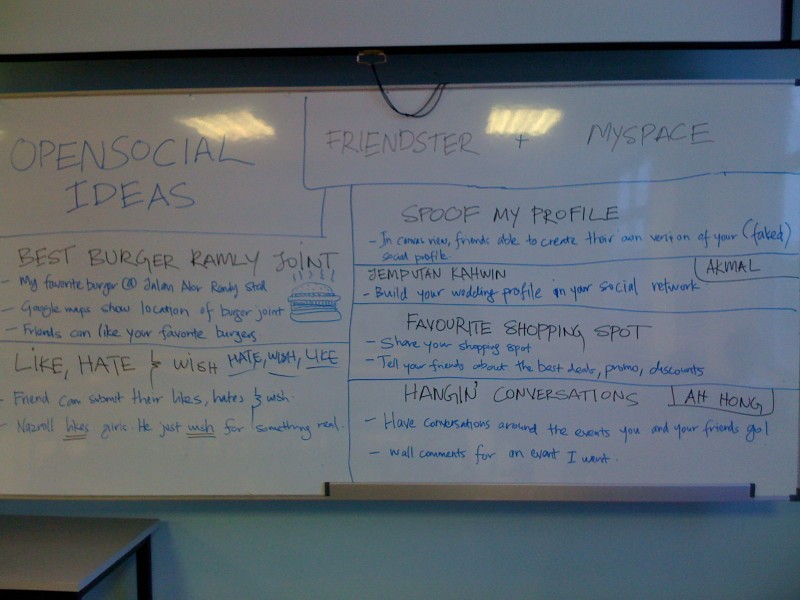 OPENSOCIAL
IDEAS
FRIENDSTER + MYSPACE
BEST BURGER RAMLY JOINT
- My favorite burger @ Jalan Alor Ramly Stall
- Google maps show location of burger joint
- Friends can like your favorite burgers.
LIKE, HATE & WISH HATE, WISH, LIKE
- Friend can submit their likes, hates & wish.
- Nazroll likes girls. He just wish for something real.
SPOOF MY PROFILE
- In canvas view, friends able to create their own version of your (faked)
social profile.
JEMPUTAN KAHWIN AKMAL
- Build your wedding profile in your social network
FAVOURITE SHOPPING SPOT
- Share your shopping spot
- Tell your friends about the best deals, promo, discounts
HANGIN' CONVERSATIONS AH HONG
- Have conversations around the events you and your friends go!
- wall comments for an event I went.